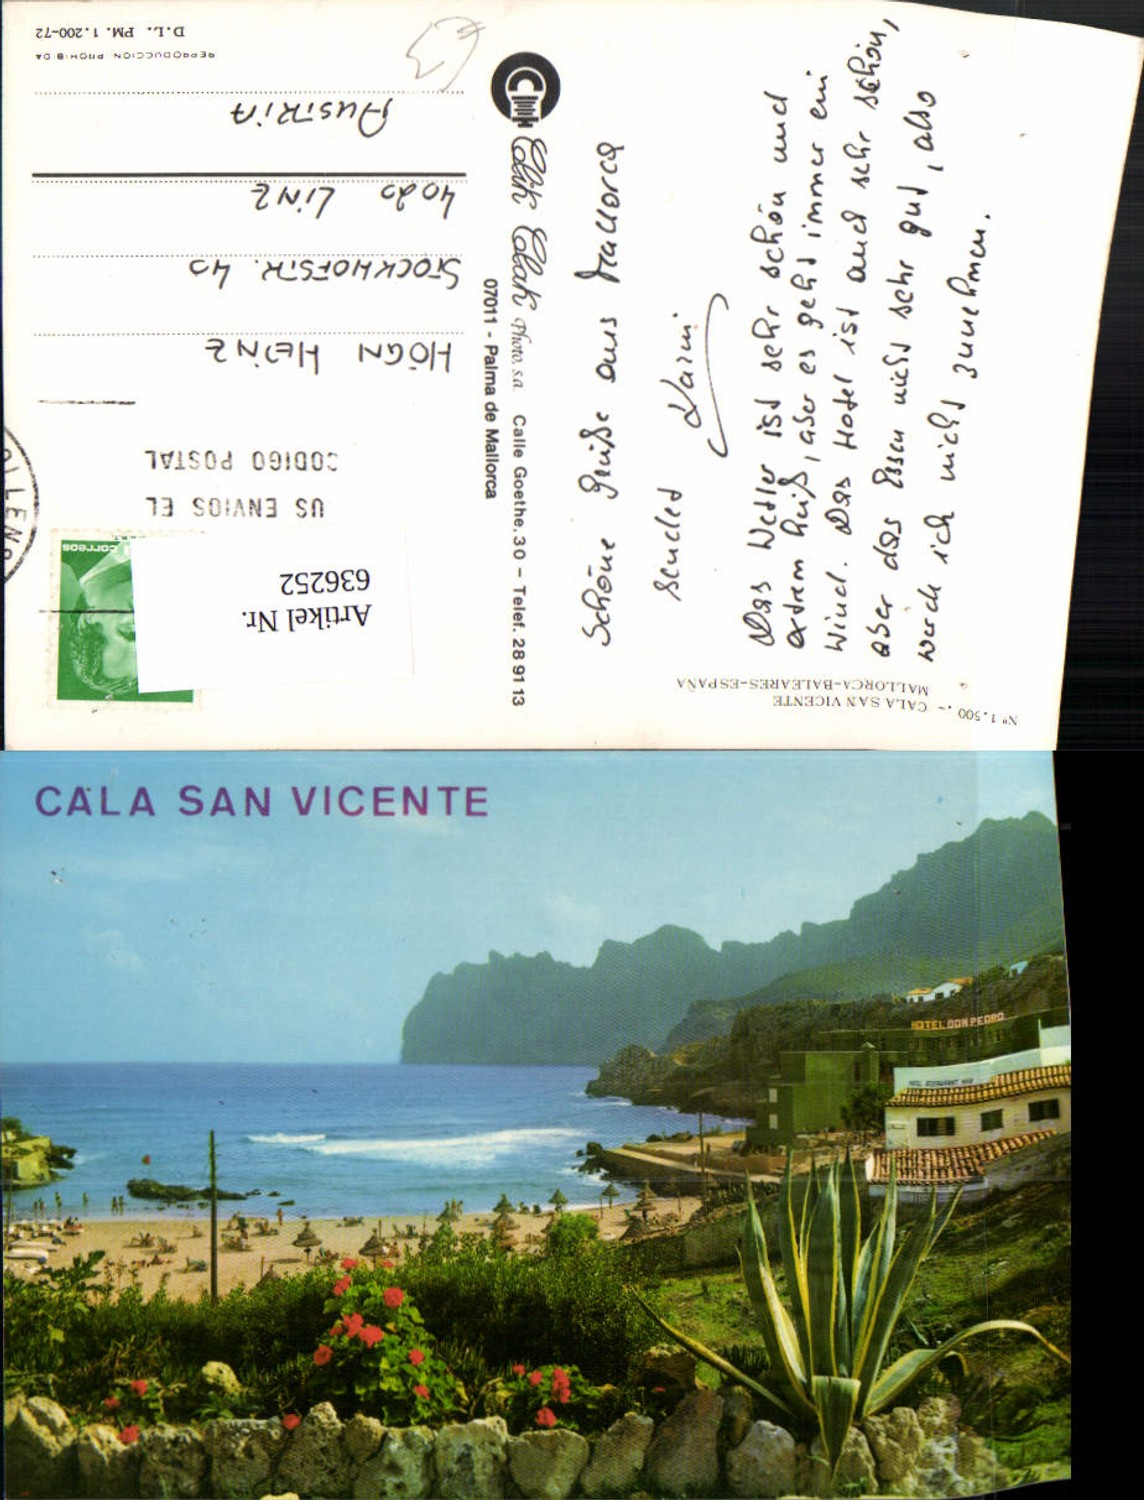 Nº 1.500 .- CALA SAN VICENTE
MALLORCA-BALEARES-ESPAÑA
Schöne Grüße aus Mallorca
sendet
Karin
Das Wetter ist sehr schön und
extrem heiß, aber es geht immer ein
Wind. Das Hotel ist auch sehr schön,
aber das Essen nicht sehr gut, also
werde ich nicht zunehmen.
Clik Clak Photo, s.a. Calle Goethe, 30 - Telef. 28 91 13
07011 - Palma de Mallorca
correos
Artikel Nr.
636252
US ENVIOS EL
CODIGO POSTAL
HÖGN HEINZ
STOCKHOFSTR. 40
4020 LINZ
AUSTRIA
REPRODUCCION PROHIBIDA
D.L. PM. 1.200-72
CALA SAN VICENTE
HOTEL DON PEDRO